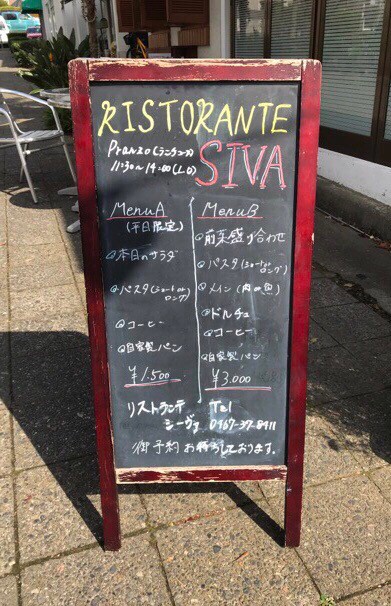 RISTORANTE
Pranzo(ランチコース)
11:30~14:00(L.O)
SIVA
MenuA
(平日限定)
◎本日のサラダ
◎パスタ(ショートor
ロング)
◎コーヒー
◎自家製パン
¥1.500
MenuB
◎前菜盛り合わせ
◎パスタ(ショートor
ロング)
◎メイン(肉or魚)
◎ドルチェ
◎コーヒー
◎自家製パン
¥3.000
リストランテ Tel
シーヴァ 0467-37-8411
御予約お待ちしております。